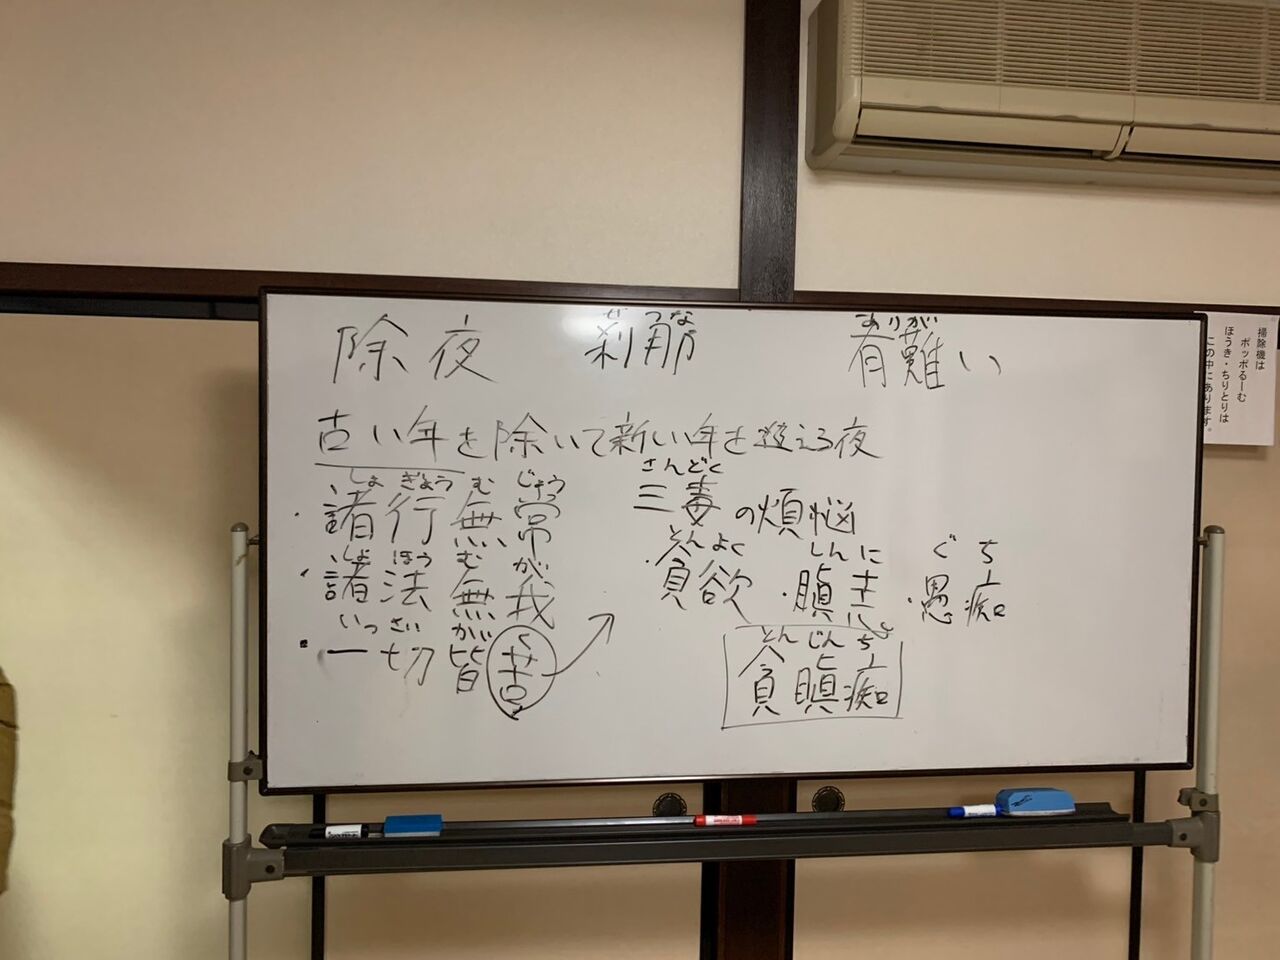 除夜 刹那 有難い
せつな ありが
古い年を除いて新しい年を迎える夜
しょ ぎょう む じょう
・諸行無常
しょ ほう む が
・諸法無我
いっさい かい く
・一切皆苦
さんどく
三毒の煩悩
とんよく しんに ぐち
・貪欲・瞋恚・愚痴
とんじんち
貪瞋痴
掃除機は
ポッポるーむ
ほうき・ちりとりは
この中にあります。